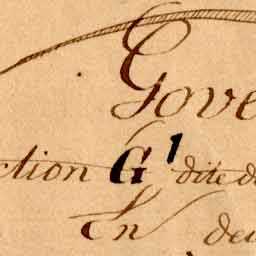 Gove
ction G¹ dite de
En deu